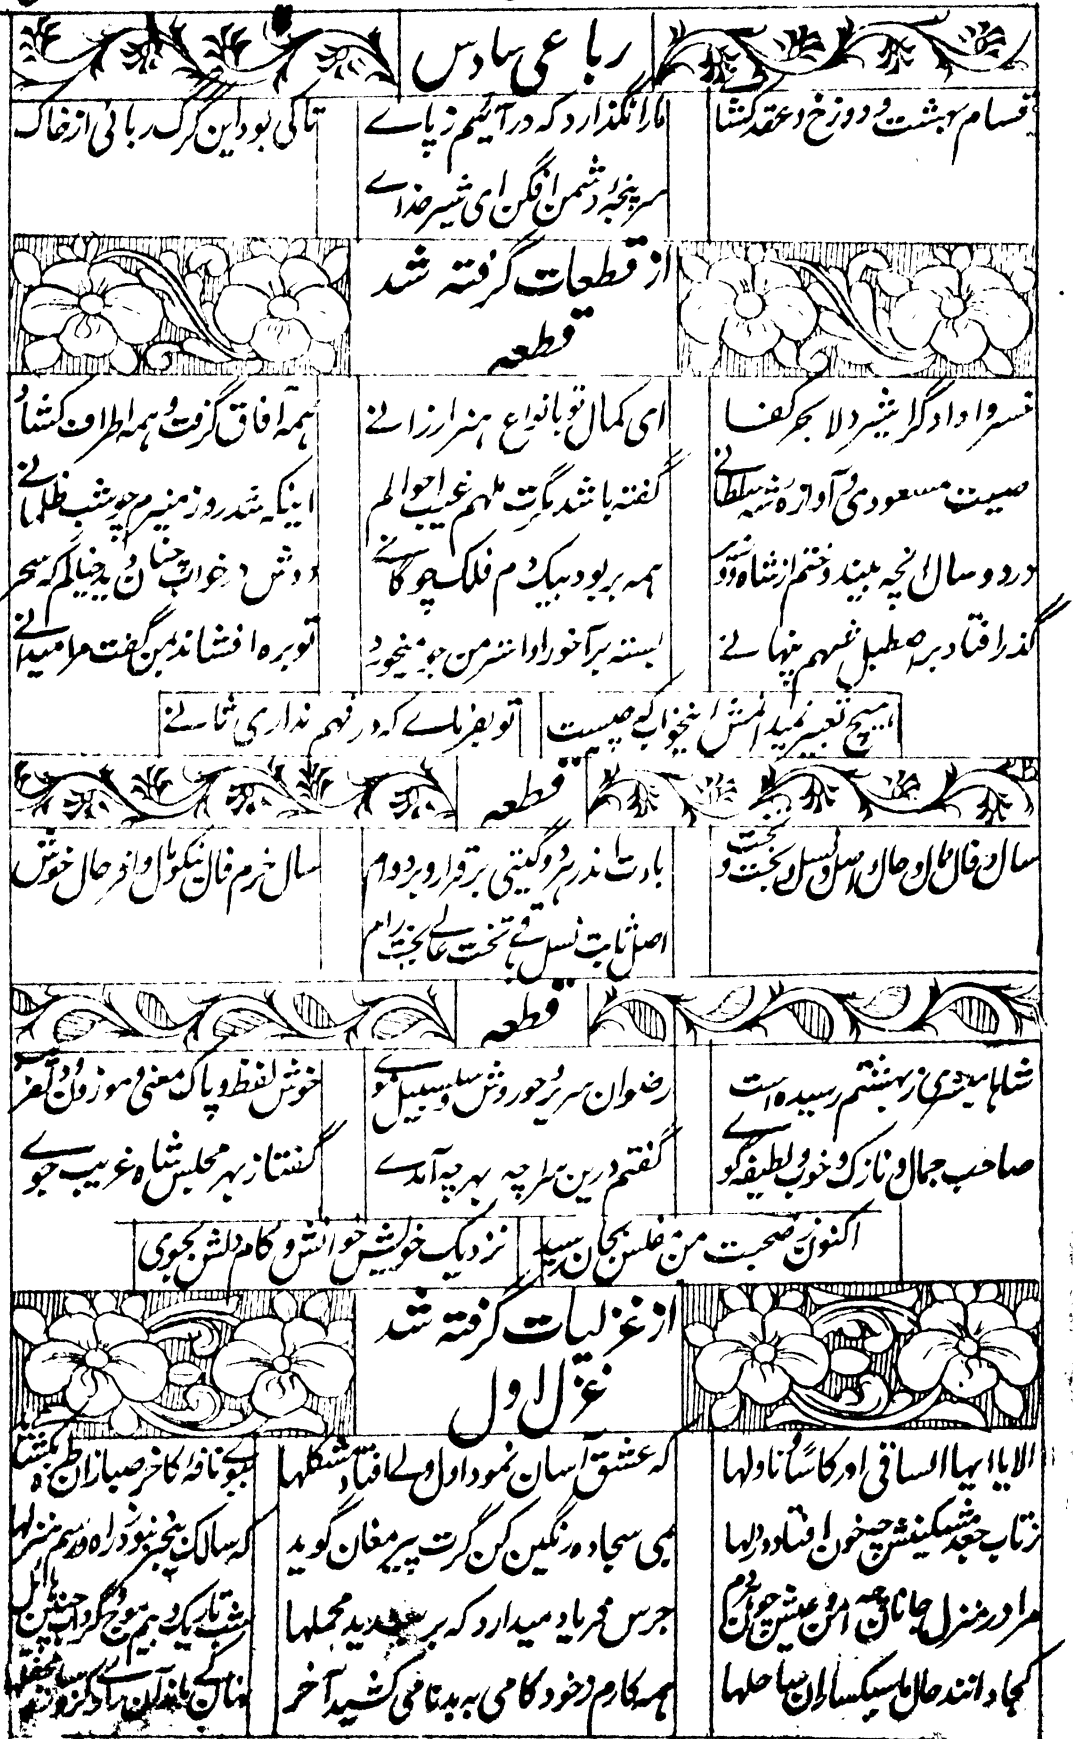 رباعی سادس
قسام بهشت و دوزخ و عقد کشا
ما را نگذارد که درآئیم ز پاے
تا کی بود این گرگ ربائی از خاک
سر پنجهٔ دشمن افگن ای شیر خداے
از قطعات گرفته شد
قطعه
خسروا دادگرا شیر دلا بحر کفا
ای کمال تو بانواع هنر ارزانے
همه آفاق گرفت و همه اطراف کشاد
صیت مسعودی و آوازهٔ شه سلطانے
گفته باشد مگرت ملهم غیب احوالم
اینکه شد روز منیرم چو شب ظلمانے
در دو سال انچه بیندوختم از شاه و وزیر
همه بربود بیک دم فلک چوگانے
دوش در خواب چنان دید خیالم که سحر
گذر افتاد بر اصطبل شهم پنهانے
بسته بر آخور او استر من جو میخورد
توبره افشاند بمن گفت مرا میدانے
هیچ تعبیر نمیدانمش این خواب که چیست
تو بفرماے که در فهم نداری ثانے
قطعه
سال و فال و مال و حال و اصل و نسل و بخت و تخت
بادت اندر هر دو گیتی برقرار و بر دوام
سال خرم فال نیکو مال وافر حال خوش
اصل ثابت نسل باقے تخت عالے بخت رام
قطعه
شاها مبشری ز بهشتم رسیده است
رضوان سریر و حوروش و سلسبیل موے
خوش لفظ و پاک معنی و موزون و دلفریب
صاحب جمال و نازک و خوب و لطیفه گوے
گفتم درین سراچه بهر چه آمدے
گفتا ز بهر مجلس شاه غریب جوے
اکنون ز صحبت من مفلس بجان رسید
نزدیک خویش خوانش و کام دلش بجوی
از غزلیات گرفته شد
غزل اول
الا یا ایها الساقی ادر کاسا و ناولها
که عشق آسان نمود اول ولے افتاد مشکلها
ببوے نافهٔ کاخر صبا زان طره بکشاید
ز تاب جعد مشکینش چه خون افتاد در دلها
بمی سجاده رنگین کن گرت پیر مغان گوید
که سالک بیخبر نبود ز راه و رسم منزلها
مرا در منزل جانان چه امن و عیش چون هردم
جرس فریاد میدارد که بر بندید محملها
شب تاریک و بیم موج و گردابے چنین هائل
کجا دانند حال ما سبکساران ساحلها
همه کارم ز خود کامی به بدنامی کشید آخر
نهان کے ماند آن رازے کزو سازند محفلها